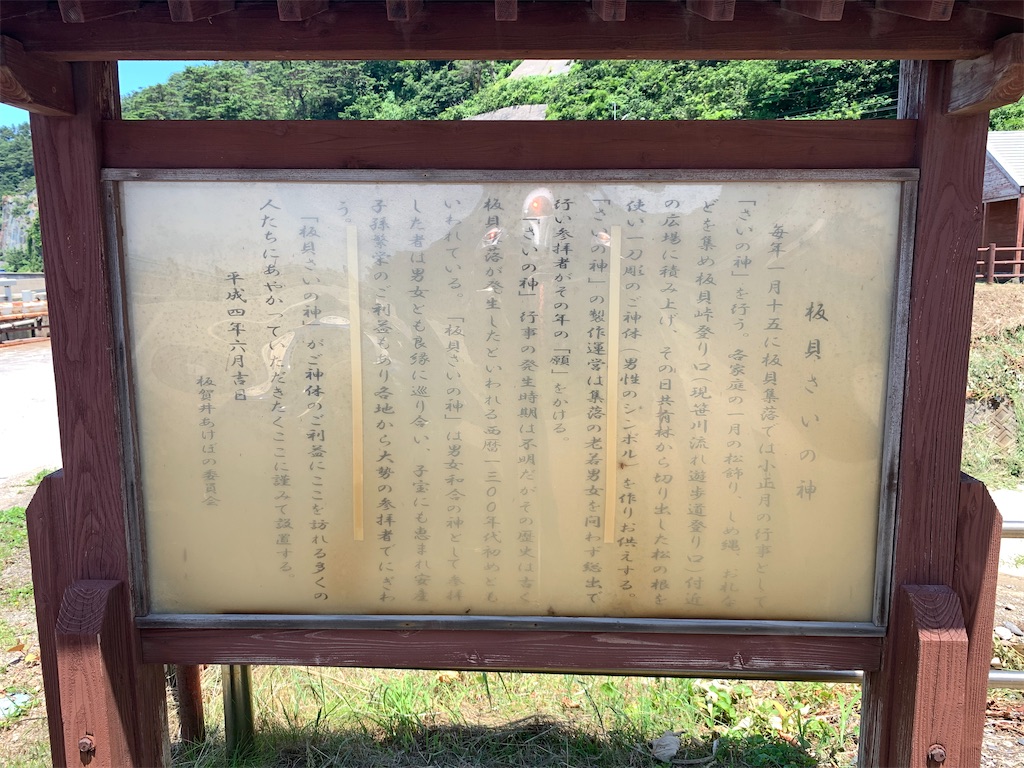 板貝さいの神
毎年一月十五に板貝集落では小正月の行事として
「さいの神」を行う。各家庭の一月の松飾り、しめ縄、お札な
どを集め板貝峠登り口(現笹川流れ遊歩道登り口)付近
の広場に積み上げ、その日共有林から切り出した松の根を
使い一刀彫のご神体(男性のシンボル)を作りお供えする。
「さいの神」の製作運営は集落の老若男女を問わず総出で
行い参拝者がその年の「願」をかける。
「さいの神」行事の発生時期は不明だがその歴史は古く
板貝集落が発生したといわれる西暦一三〇〇年代初めとも
いわれている。「板貝さいの神」は男女和合の神として参拝
した者は男女とも良縁に巡り合い、子宝にも恵まれ安産
子孫繁栄のご利益もあり各地から大勢の参拝者でにぎわ
う。
「板貝さいの神」がご神体のご利益にここを訪れる多くの
人たちにあやかっていただきたくここに謹みて設置する。
平成四年六月吉日
板貝井あけぼの委員会